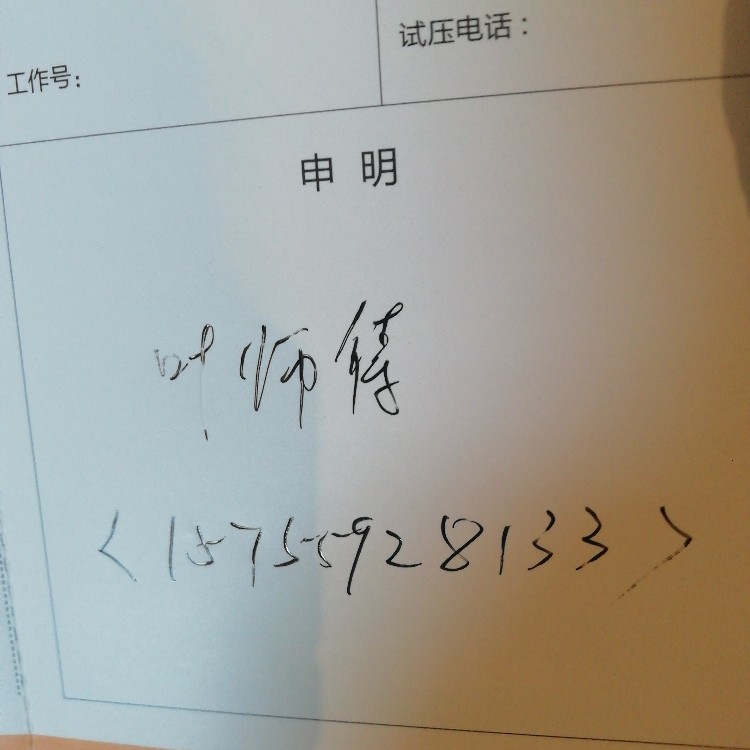 试压电话：
工作号：
申明
叶师傅
<15755928133>